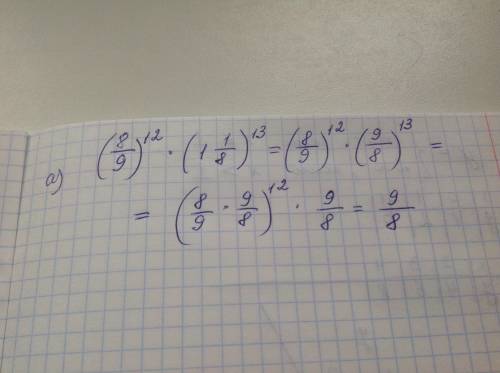 а) (8/9)^12 · (1 1/8)^13 = (8/9)^12 · (9/8)^13 =
= (8/9 · 9/8)^12 · 9/8 = 9/8